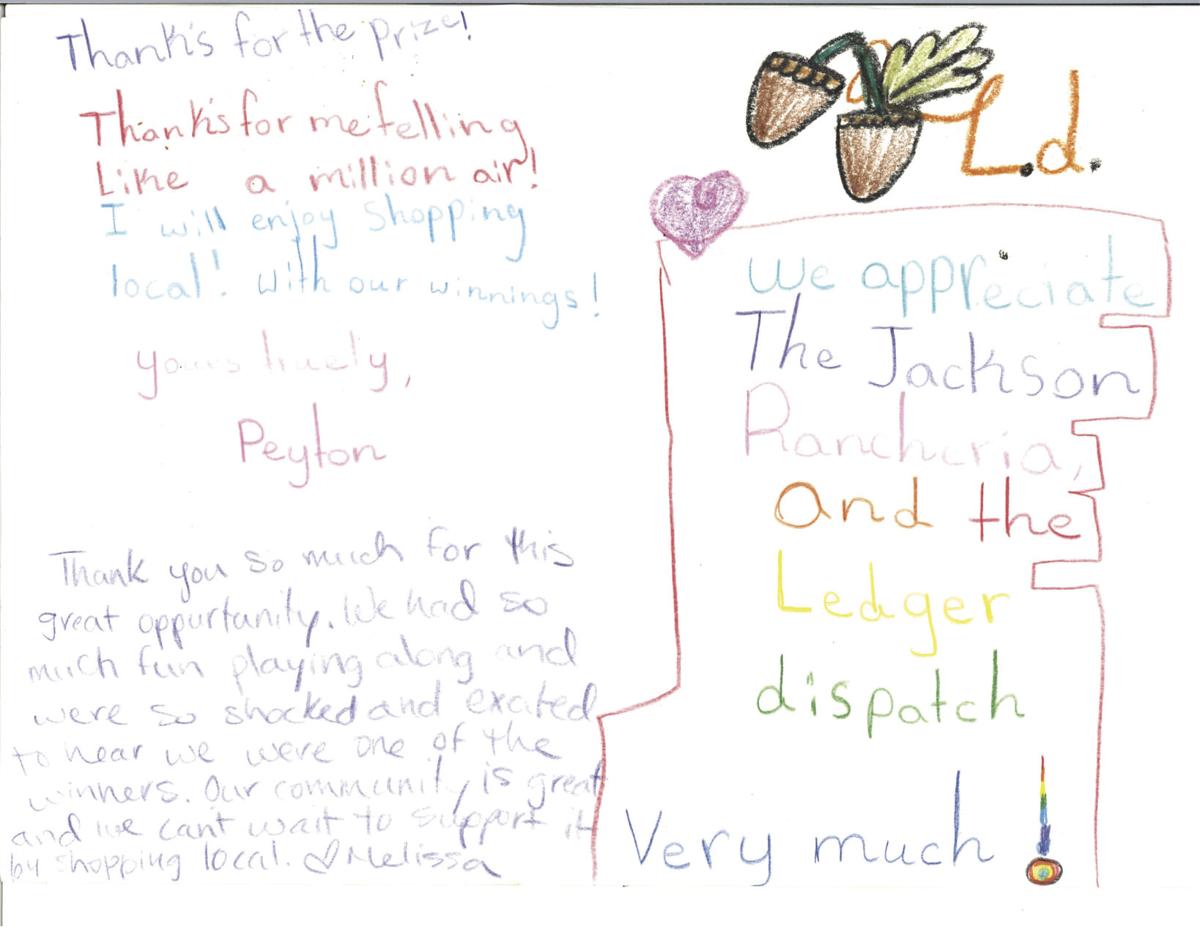 Thank's for the prize!
Thank's for me felling
Like a million air!
I will enjoy shopping
local! with our winnings!
yours truely,
Peyton
Thank you so much for this
great oppurtanity. We had so
much fun playing along and
were so shocked and exated
to hear we were one of the
winners. Our community is great
and we cant wait to support it
by shopping local. ♡Melissa
L.d.
we appreciate
The Jackson
Rancheria,
and the
Ledger
dispatch
Very much !